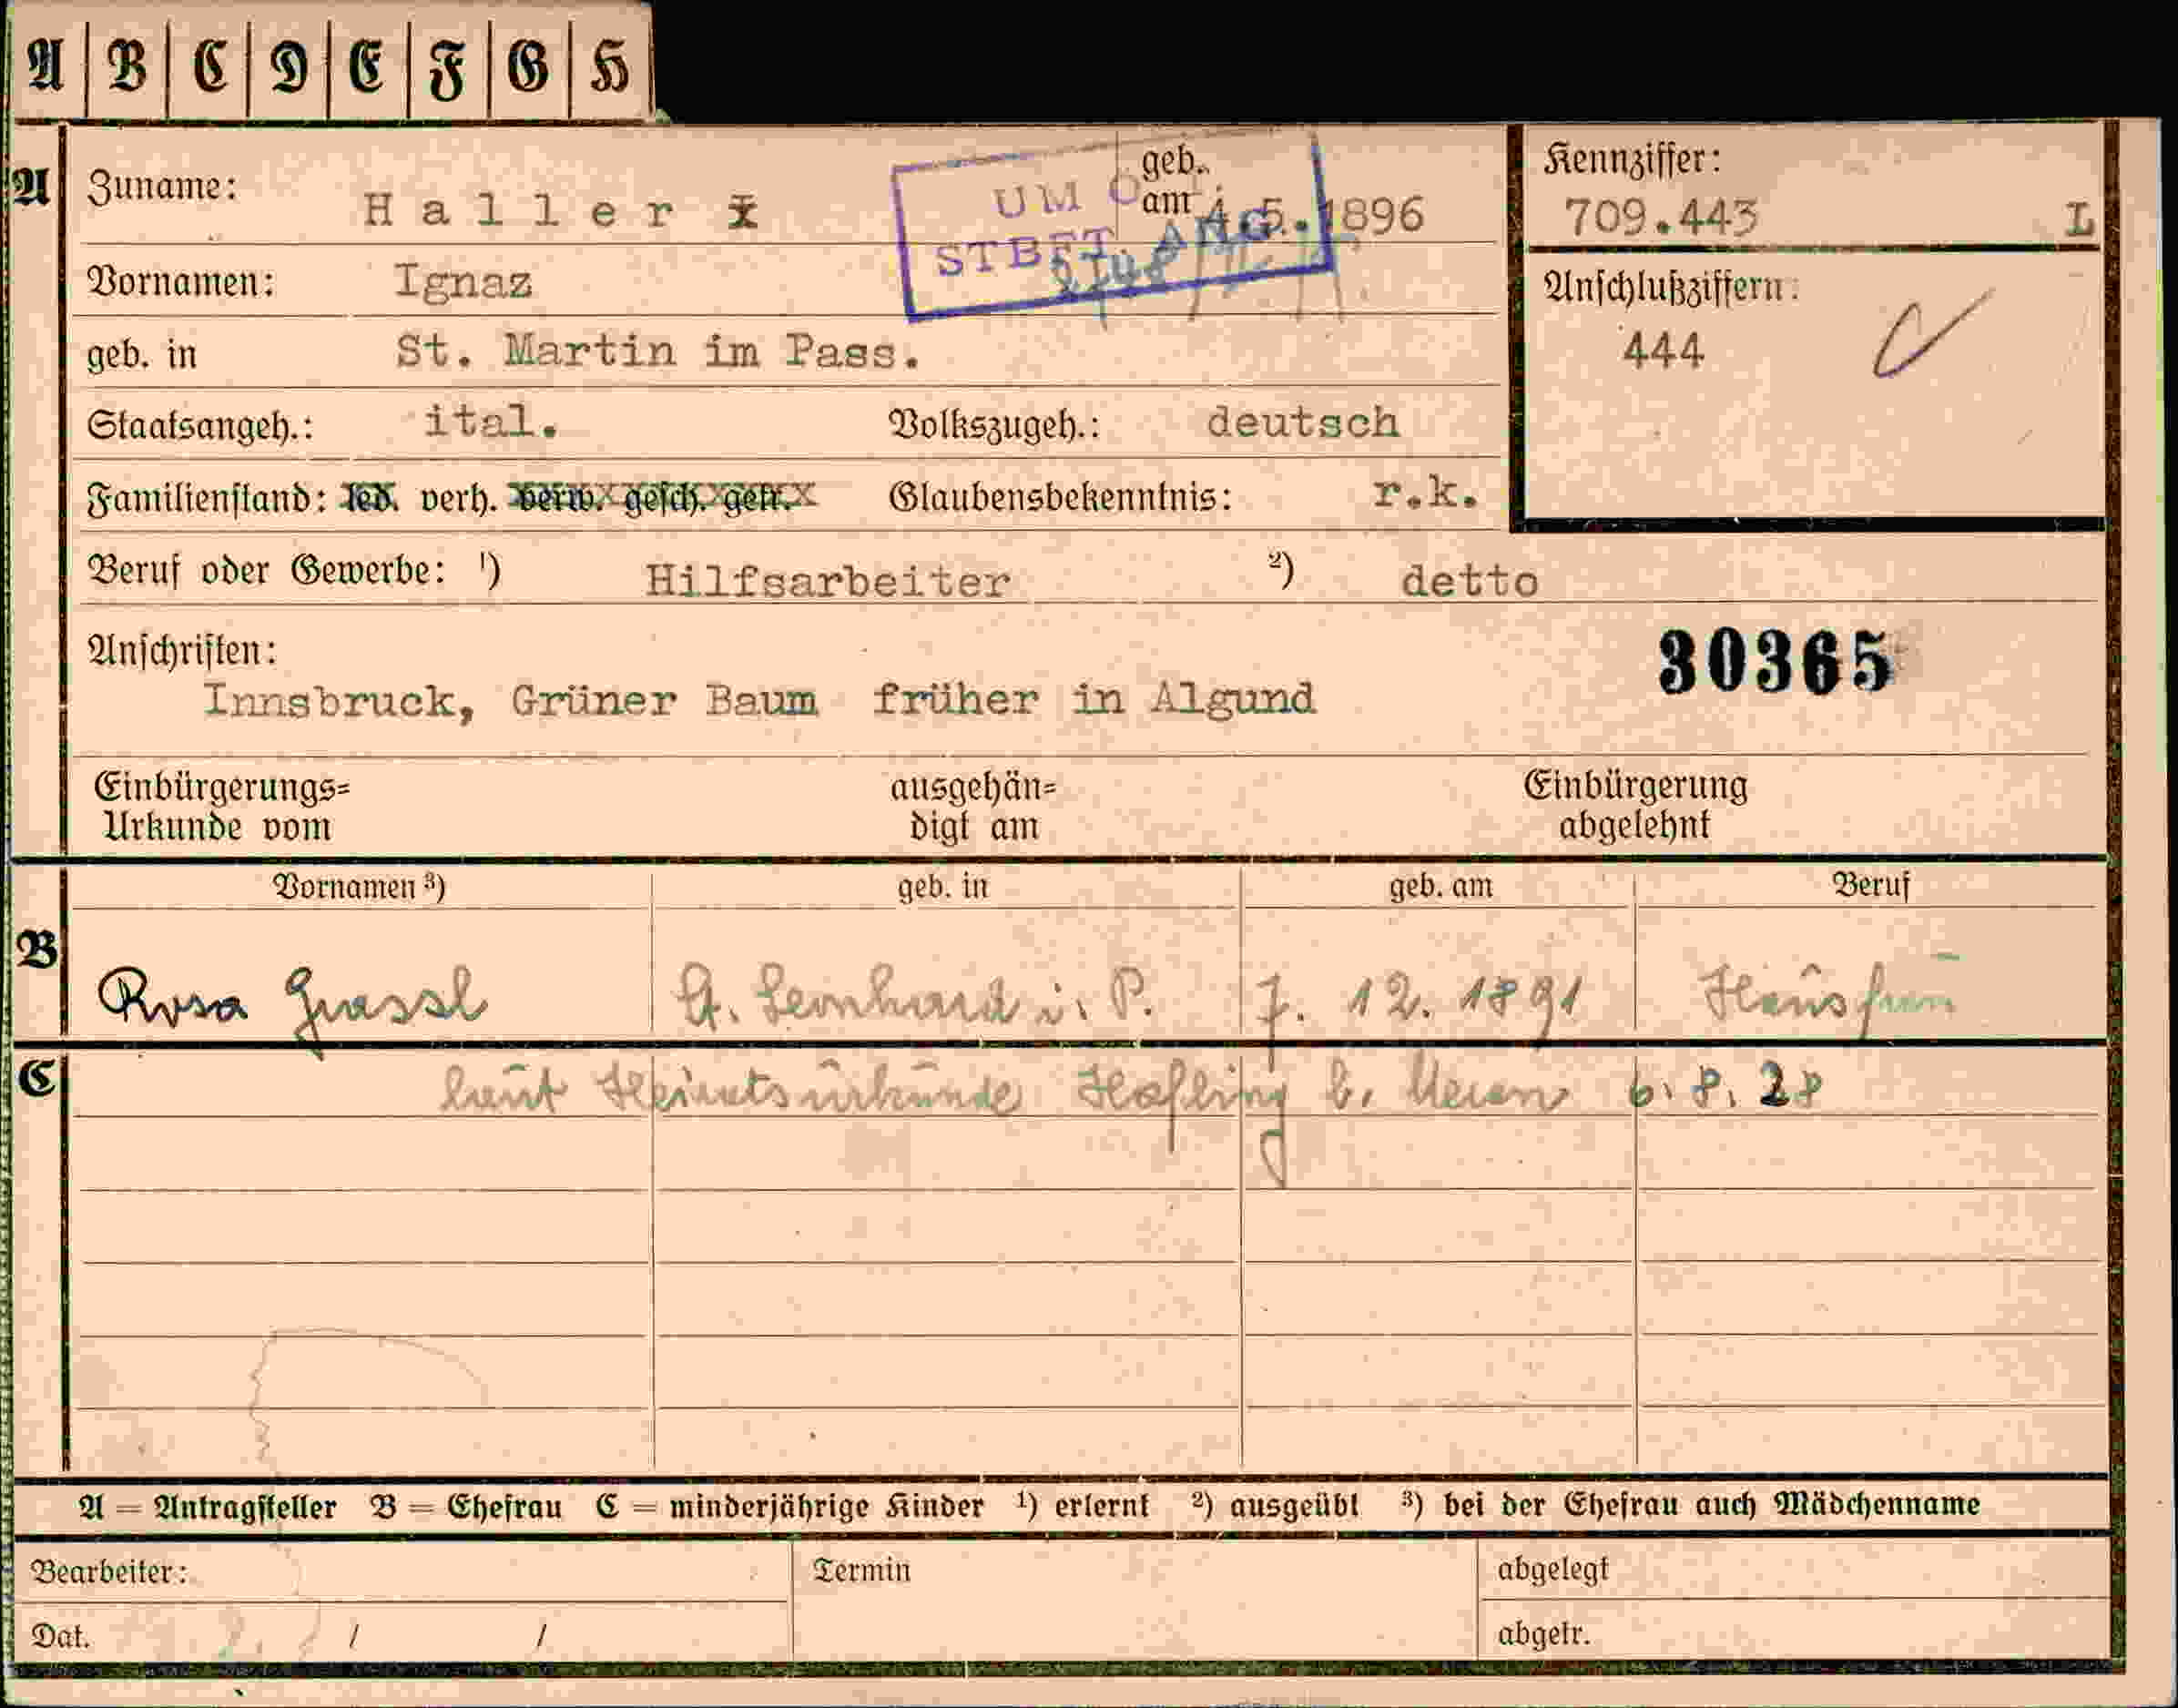 A B C D E F G H
A Zuname: Haller geb. am 4.5.1896 Kennziffer: 709.443 L
UM
STBFT. ANG.
Vornamen: Ignaz Anschlußziffern: 444
geb. in St. Martin im Pass.
Staatsangeh.: ital. Volkszugeh.: deutsch
Familienstand: led. verh. verw. gesch. getr. Glaubensbekenntnis: r.k.
Beruf oder Gewerbe: ¹) Hilfsarbeiter ²) detto
Anschriften: 30365
Innsbruck, Grüner Baum früher in Algund
Einbürgerungs= ausgehän= Einbürgerung
Urkunde vom digt am abgelehnt
Vornamen ³) geb. in geb. am Beruf
B Rosa Grassl St. Leonhard i. P. 7. 12. 1891 Hausfrau
C laut Heiratsurkunde Hafling b. Meran 6. 8. 28
A = Antragsteller B = Ehefrau C = minderjährige Kinder ¹) erlernt ²) ausgeübt ³) bei der Ehefrau auch Mädchenname
Bearbeiter: Termin abgelegt
Dat. / / abgetr.